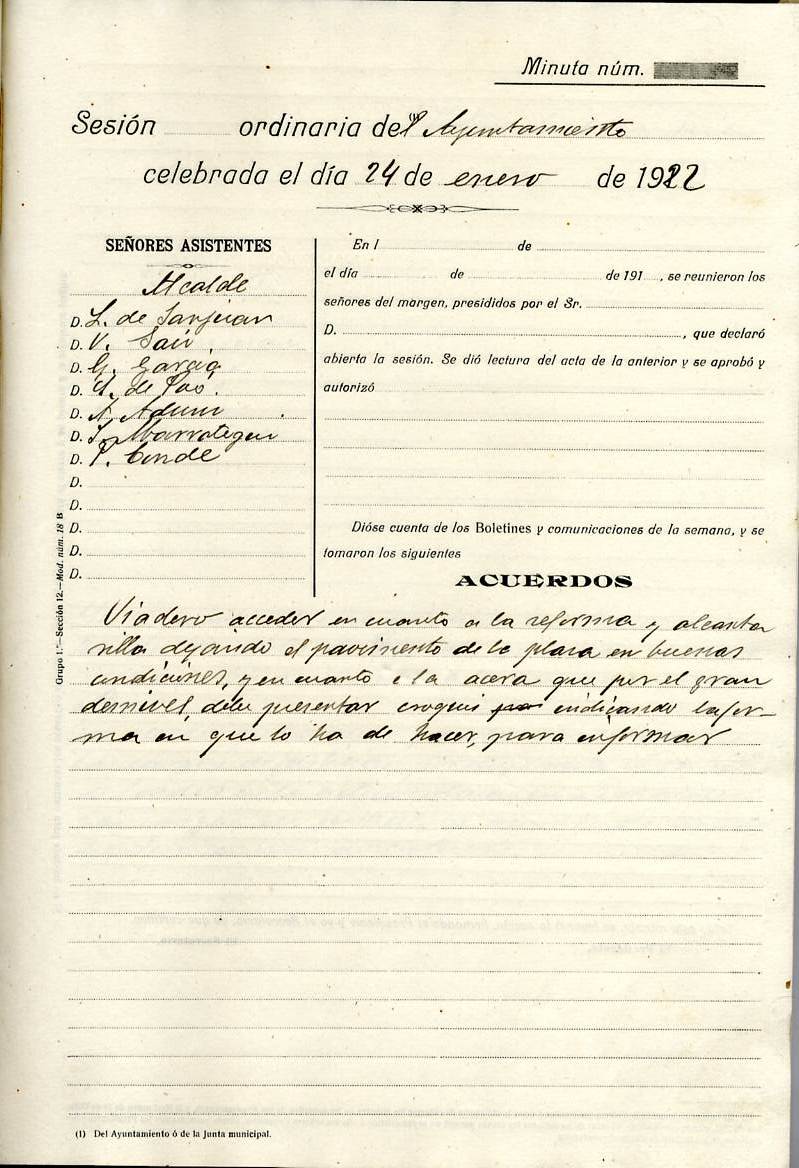 Minuta núm.
Sesión ordinaria del (1) Ayuntamiento
celebrada el día 24 de enero de 1922
SEÑORES ASISTENTES
Alcalde
D. L. de Sanjuan
D. V. Saiz
D. G. Garcia
D. de
D. A.
D.
D. P. Conde
D.
D.
D.
D.
D.
En l de
el día de de 191 , se reunieron los
señores del margen, presididos por el Sr.
D. , que declaró
abierta la sesión. Se dió lectura del acta de la anterior y se aprobó y
autorizó
Dióse cuenta de los Boletines y comunicaciones de la semana, y se
tomaron los siguientes
ACUERDOS
Viadero acceder en cuanto a la reforma y alcanta
rilla dejando el pavimento de la plaza en buenas
condiciones, y en cuanto a la acera que por el gran
desnivel, debe presentar croquis indicando la for-
ma en que lo ha de hacer, para informar
Grupo 1.º—Sección 12.—Mod. núm. 18 B
(1) Del Ayuntamiento ó de la Junta municipal.